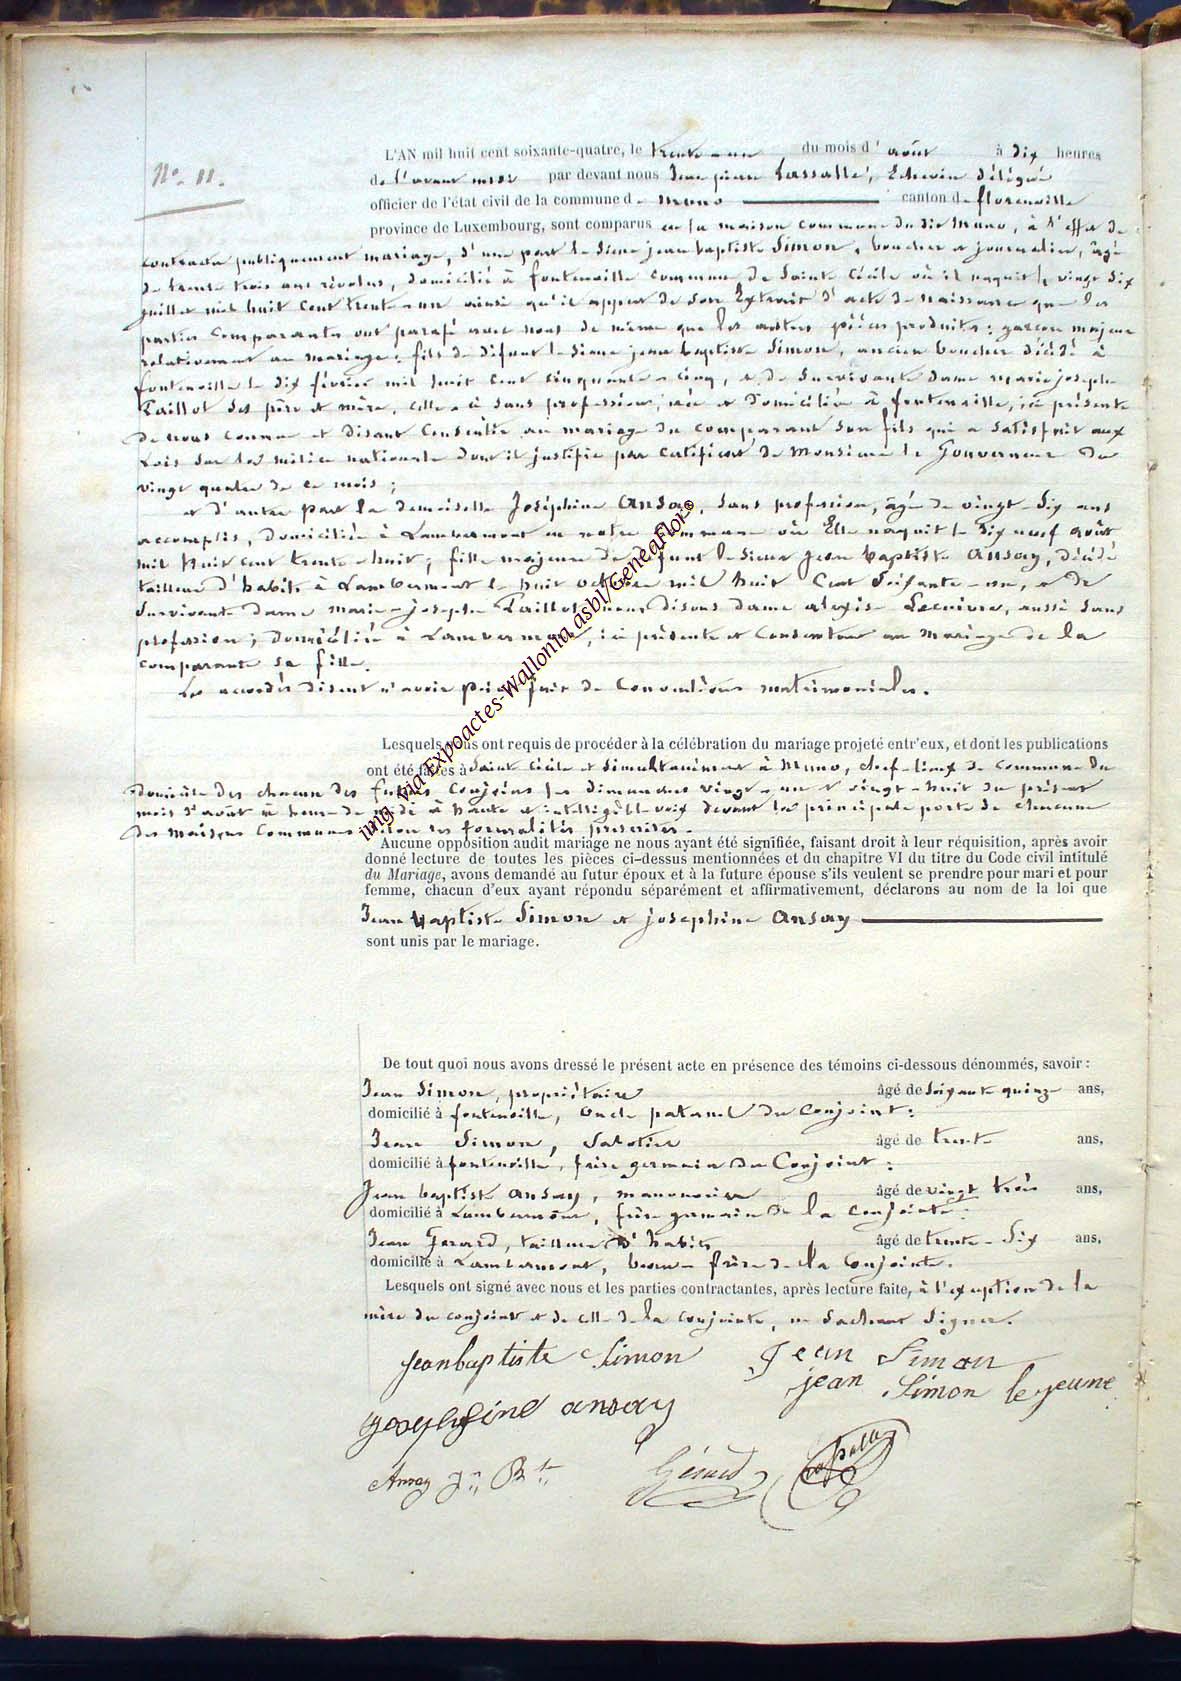 N° 11.
L'AN mil huit cent soixante-quatre, le trente-un du mois d'août à dix heures
de l'avant midi par devant nous Jean pierre Lassalle, Echevin délégué
officier de l'état civil de la commune de Muno canton de florenville
province de Luxembourg, sont comparus en la maison commune du dit Muno, à l'effet de
contracter publiquement mariage, d'une part le sieur jean baptiste Simon, boucher et journalier, âgé
de trente trois ans révolus, domicilié à fontenoille commune de Sainte Cécile où il naquit le vingt six
juillet mil huit cent trente-un ainsi qu'il appert de son Extrait d'acte de naissance que les
parties comparantes ont parafé avec nous de même que les autres pièces produites; garçon majeur
relativement au mariage; fils de défunt le sieur jean baptiste Simon, ancien boucher décédé à
fontenoille le dix février mil huit cent cinquante-cinq, et de survivante dame marie joseph
Taillot ses père et mère, celle-ci sans profession, née et domiciliée à fontenoille, ici présente
de nous connue et disant consentir au mariage du comparant son fils qui a satisfait aux
Lois sur la milice nationale dont il justifie par certificat de Monsieur le Gouverneur du
vingt quatre de ce mois;
et d'autre part la demoiselle Joséphine Ansay, sans profession, âgée de vingt-six ans
accomplis, domiciliée à Lambermont en notre Commune où Elle naquit le dix neuf août
mil huit cent trente-huit; fille majeure de défunt le sieur Jean baptiste Ansay, décédé
tailleur d'habits à Lambermont le huit octobre mil huit Cent soixante-un, et de
survivante dame marie-joseph Taillot, nous disons dame alexise Lecuivre, aussi sans
profession, domiciliée à Lambermont, ici présente et consentant au mariage de la
comparante sa fille.
Les accordés disent n'avoir pas fait de conventions matrimoniales.
Lesquels nous ont requis de procéder à la célébration du mariage projeté entr'eux, et dont les publications
ont été faites à Sainte Cécile et simultanément à Muno, chef-lieux de commune du
domicile des chacun des futurs conjoins les dimanches vingt-un et vingt-huit du présent
mois d'août à heure de midi à haute et intelligible voix devant la principale porte de chacune
des maisons communes selon les formalités prescrites.
Aucune opposition audit mariage ne nous ayant été signifiée, faisant droit à leur réquisition, après avoir
donné lecture de toutes les pièces ci-dessus mentionnées et du chapitre VI du titre du Code civil intitulé
du Mariage, avons demandé au futur époux et à la future épouse s'ils veulent se prendre pour mari et pour
femme, chacun d'eux ayant répondu séparément et affirmativement, déclarons au nom de la loi que
Jean baptiste Simon et joséphine Ansay
sont unis par le mariage.
De tout quoi nous avons dressé le présent acte en présence des témoins ci-dessous dénommés, savoir :
Jean Simon, propriétaire âgé de soixante quinze ans,
domicilié à fontenoille, oncle paternel du conjoint;
Jean Simon, sabotier âgé de trente ans,
domicilié à fontenoille, frère germain du Conjoint;
Jean baptiste Ansay, manouvrier âgé de vingt trois ans,
domicilié à Lambermont, frère germain de la conjointe;
Jean Gerard, tailleur d'habits âgé de trente-six ans,
domicilié à Lambermont, beau-frère de la Conjointe.
Lesquels ont signé avec nous et les parties contractantes, après lecture faite, à l'exeption de la
mère du conjoint et de celle de la conjointe, ne sachant signer.
jean baptiste Simon Jean Simon
jean Simon le jeune
josephine ansay
Ansay Jn Bte Gérard Lassalle
img via Expoactes-Wallonia asbl/GeneaFlor®